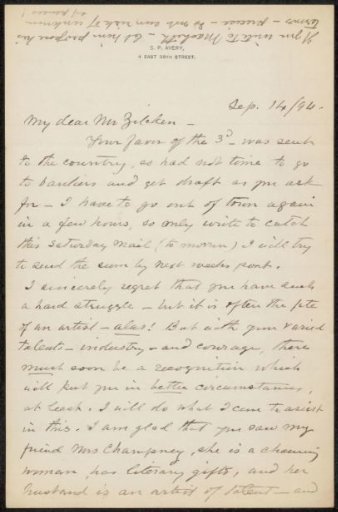 If you write to Macbeth - let him propose his
terms - prices - do not run risk of unknown
S. P. AVERY,
4 EAST 38TH STREET.
Sep. 14/94.
My dear Mr Zilcken -
Your favor of the 3d - was sent
to the country, so had not time to go
to bankers and get draft as you ask
for - I have to go out of town again
in a few hours, so only write to catch
this Saturday mail (to morrow) I will try
to send the sum by next weeks post.
I sincerely regret that you have such
a hard struggle - but it is often the fate
of an artist - alas! But with your varied
talents - industry - and courage, there
must soon be a recognition which
will put you in better circumstances,
at least. I will do what I can to assist
in this. I am glad that you saw my
friend Mrs Champney, she is a charming
woman, has literary gifts, and her
husband is an artist of talent - and